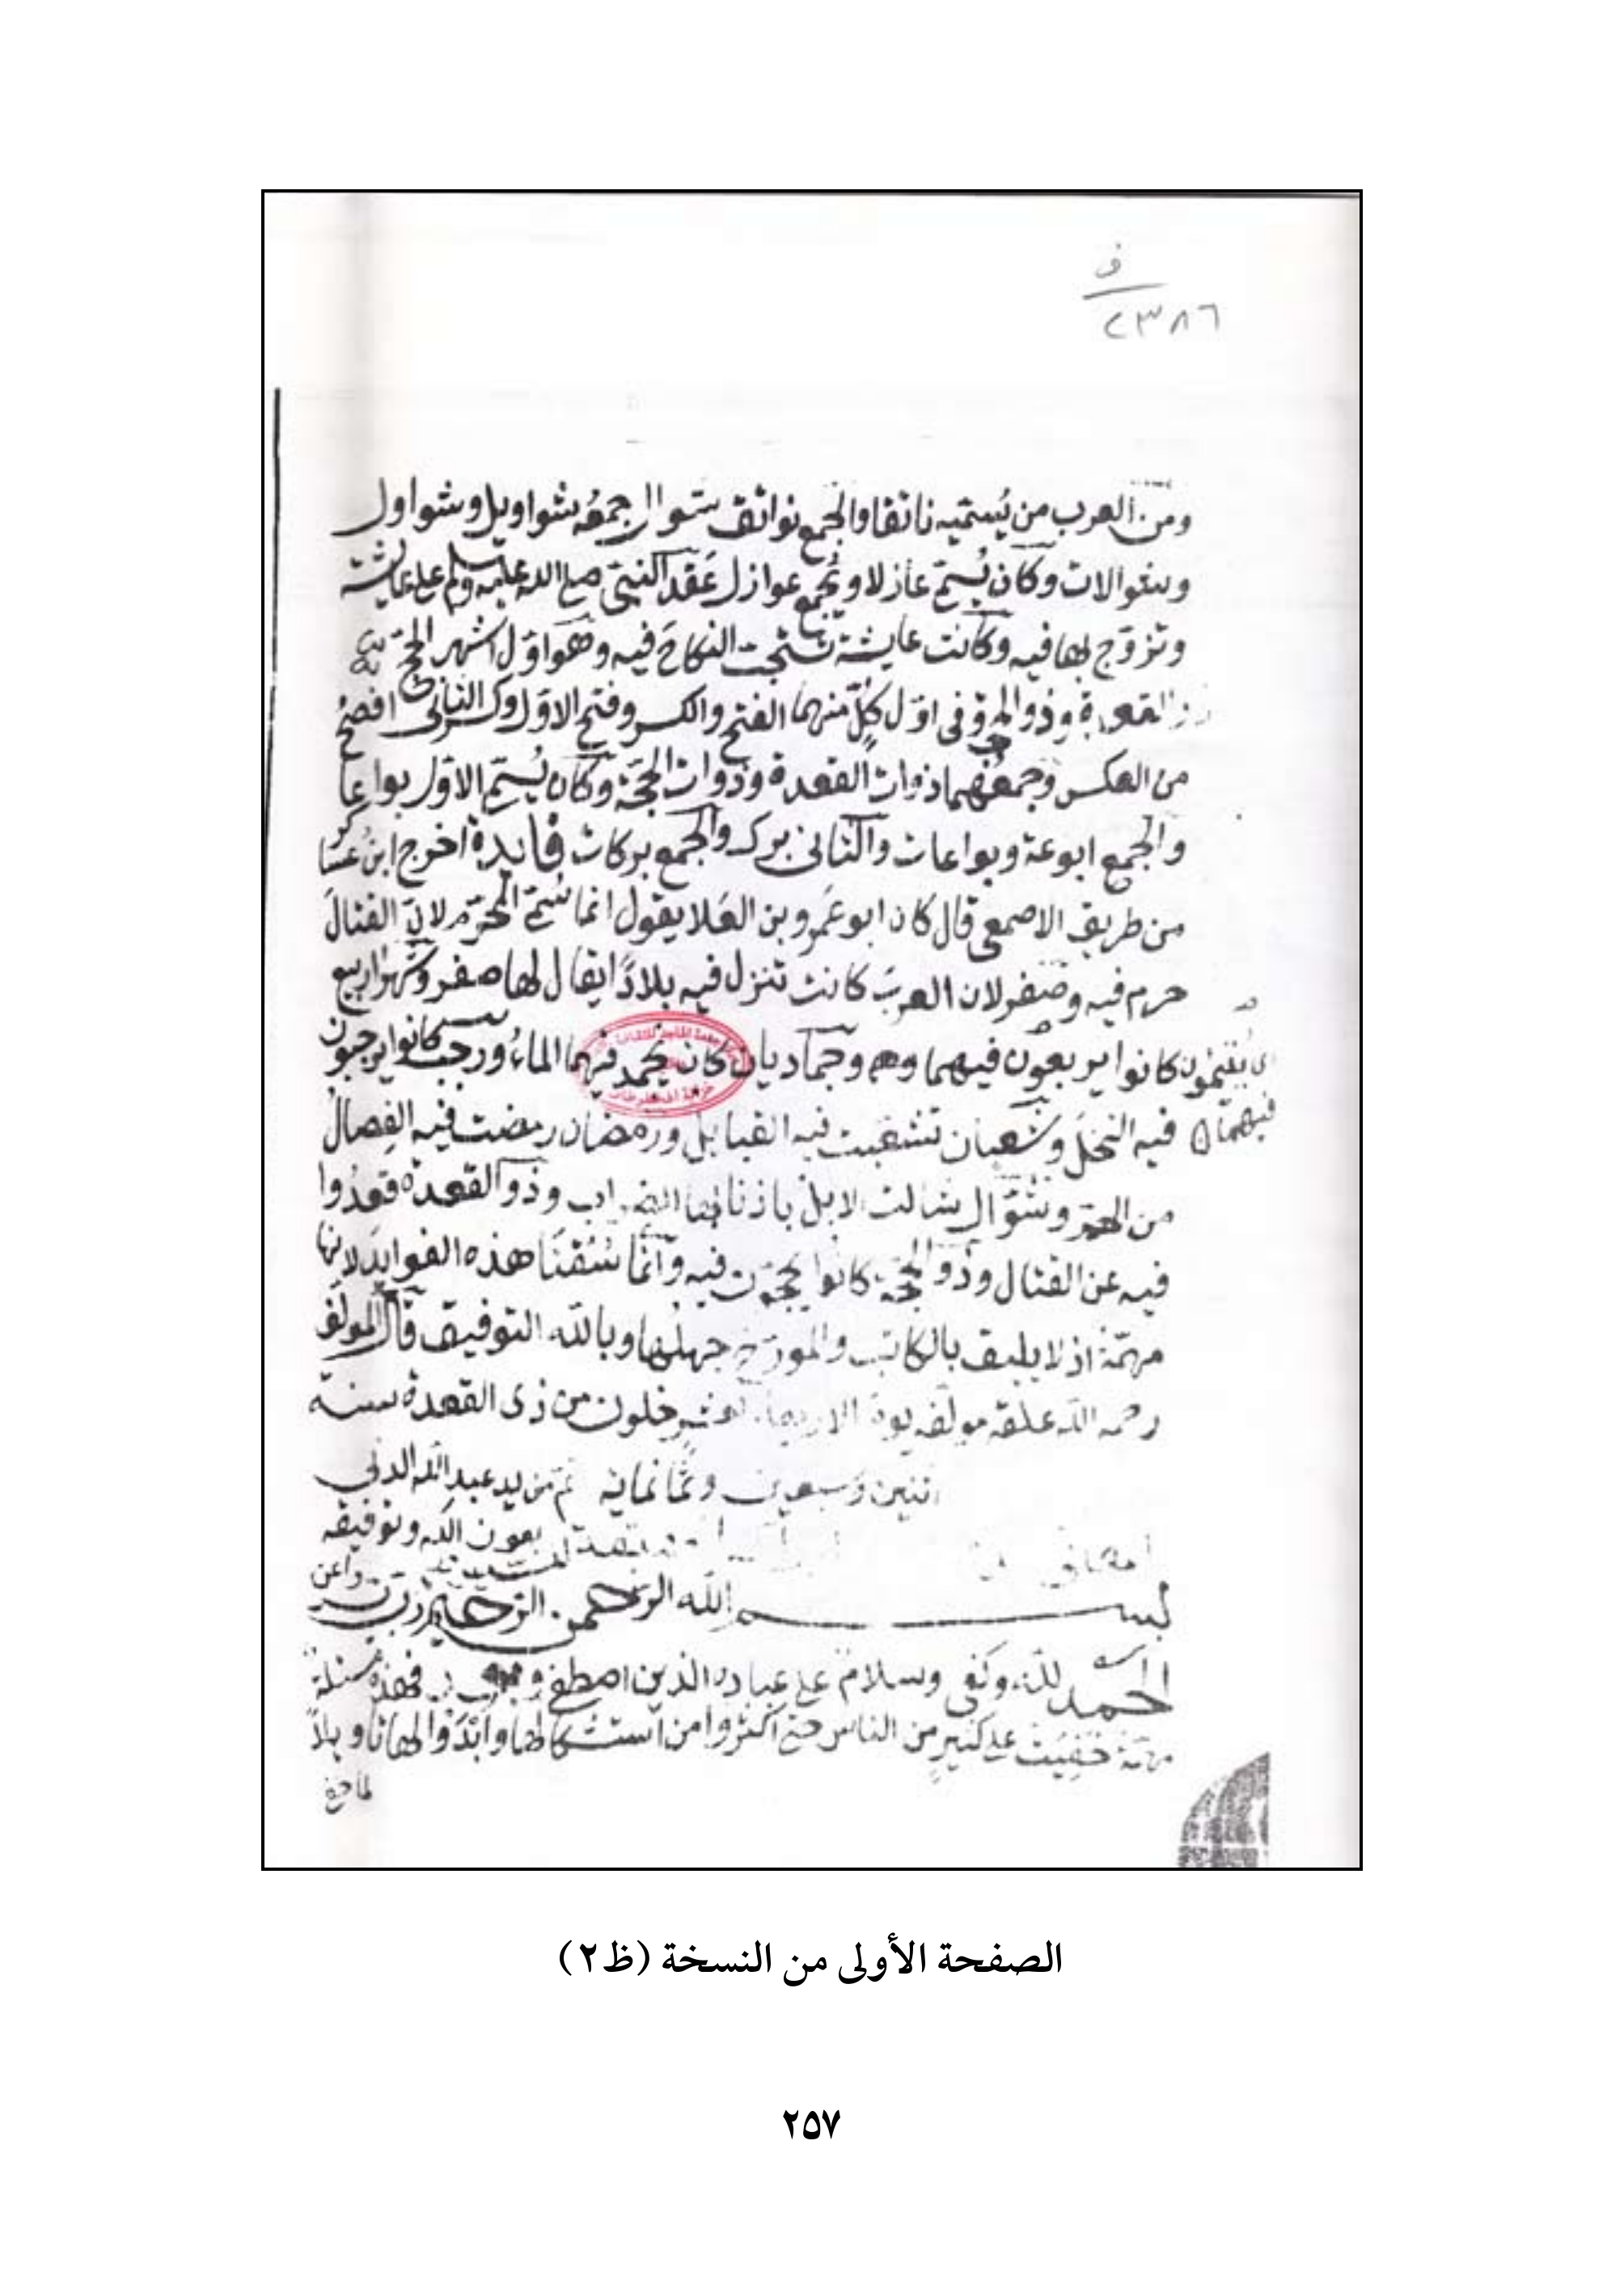 ف
٢٣٨٦
ومن العرب من يُسمّيه ناتقا والجمع نواتق شوال جمعُه شواويل وشواول
وشوالات وكان يُسمّى عاذلا ويُجمع عواذل عَقد النبيّ صلى الله عليه وسلم على عايشة
وتزوّج بها فيه وكانت عايشة تستحبّ النكاح فيه وهو اوّل اشهر الحجّ
ذو القعدة وذو الحجة وفى اوّل كُلٍّ منهما الفتح والكسر وفتح الاوّل وكسر الثانى افصحُ
من العكس وجمعهما ذوات القعدة وذوات الحجّة وكان يُسمّى الاوّل بواعا
والجمع ابوعة وبواعات والثانى برك والجمع بركات فايدة اخرج ابنُ عسا
كر
من طريق الاصمعى قال كان ابو عَمرو بن العَلا يقول انما سُمّى المحرّم لانّ القتالَ
حرم فيه وصفر لان العربَ كانت تنزل فيه بلادًا يقال لها صفر وشهرا ربيع
كانوا يربعون فيهما وجماديان كان يجمد فيهما الماءُ ورجب كانوا يرجبون
اى يُقيمون
فيهما
فيه النخلَ وشعبان تشعّبت فيه القبايل ورمضان رمضت فيه الفِصالُ
من الحرّ وشوّال شالت الابل باذنابها للضراب وذو القعدة قعدُوا
فيه عن القتال وذو الحجّة كانوا يحجّون فيه وانّما سُقنَا هذه الفوايدَ لانها
مهمّة اذ لا يليق بالكاتب والمورّخ جهلُها وبالله التوفيق قال المولف
رحمه الله علقه مولفه يوم الاربعاء لعشر خلون من ذى القعدة سنة
اثنين وسبعين وثمانماية تم من يد عبد الله الدلى
بعون الله وتوفيقه
بسم الله الرحمن الرحيم ربّ يسّر واعن
الحمد لله وكفى وسلام على عباده الذين اصطفى وبعد فهذه مسئلة
مهمّة خَفِيَت على كثيرٍ من الناس حتى اكثروا من استشكالها وابْدَوا لها تاويلاً
الصفحة الأولى من النسخة (ظ٢)
٢٥٧